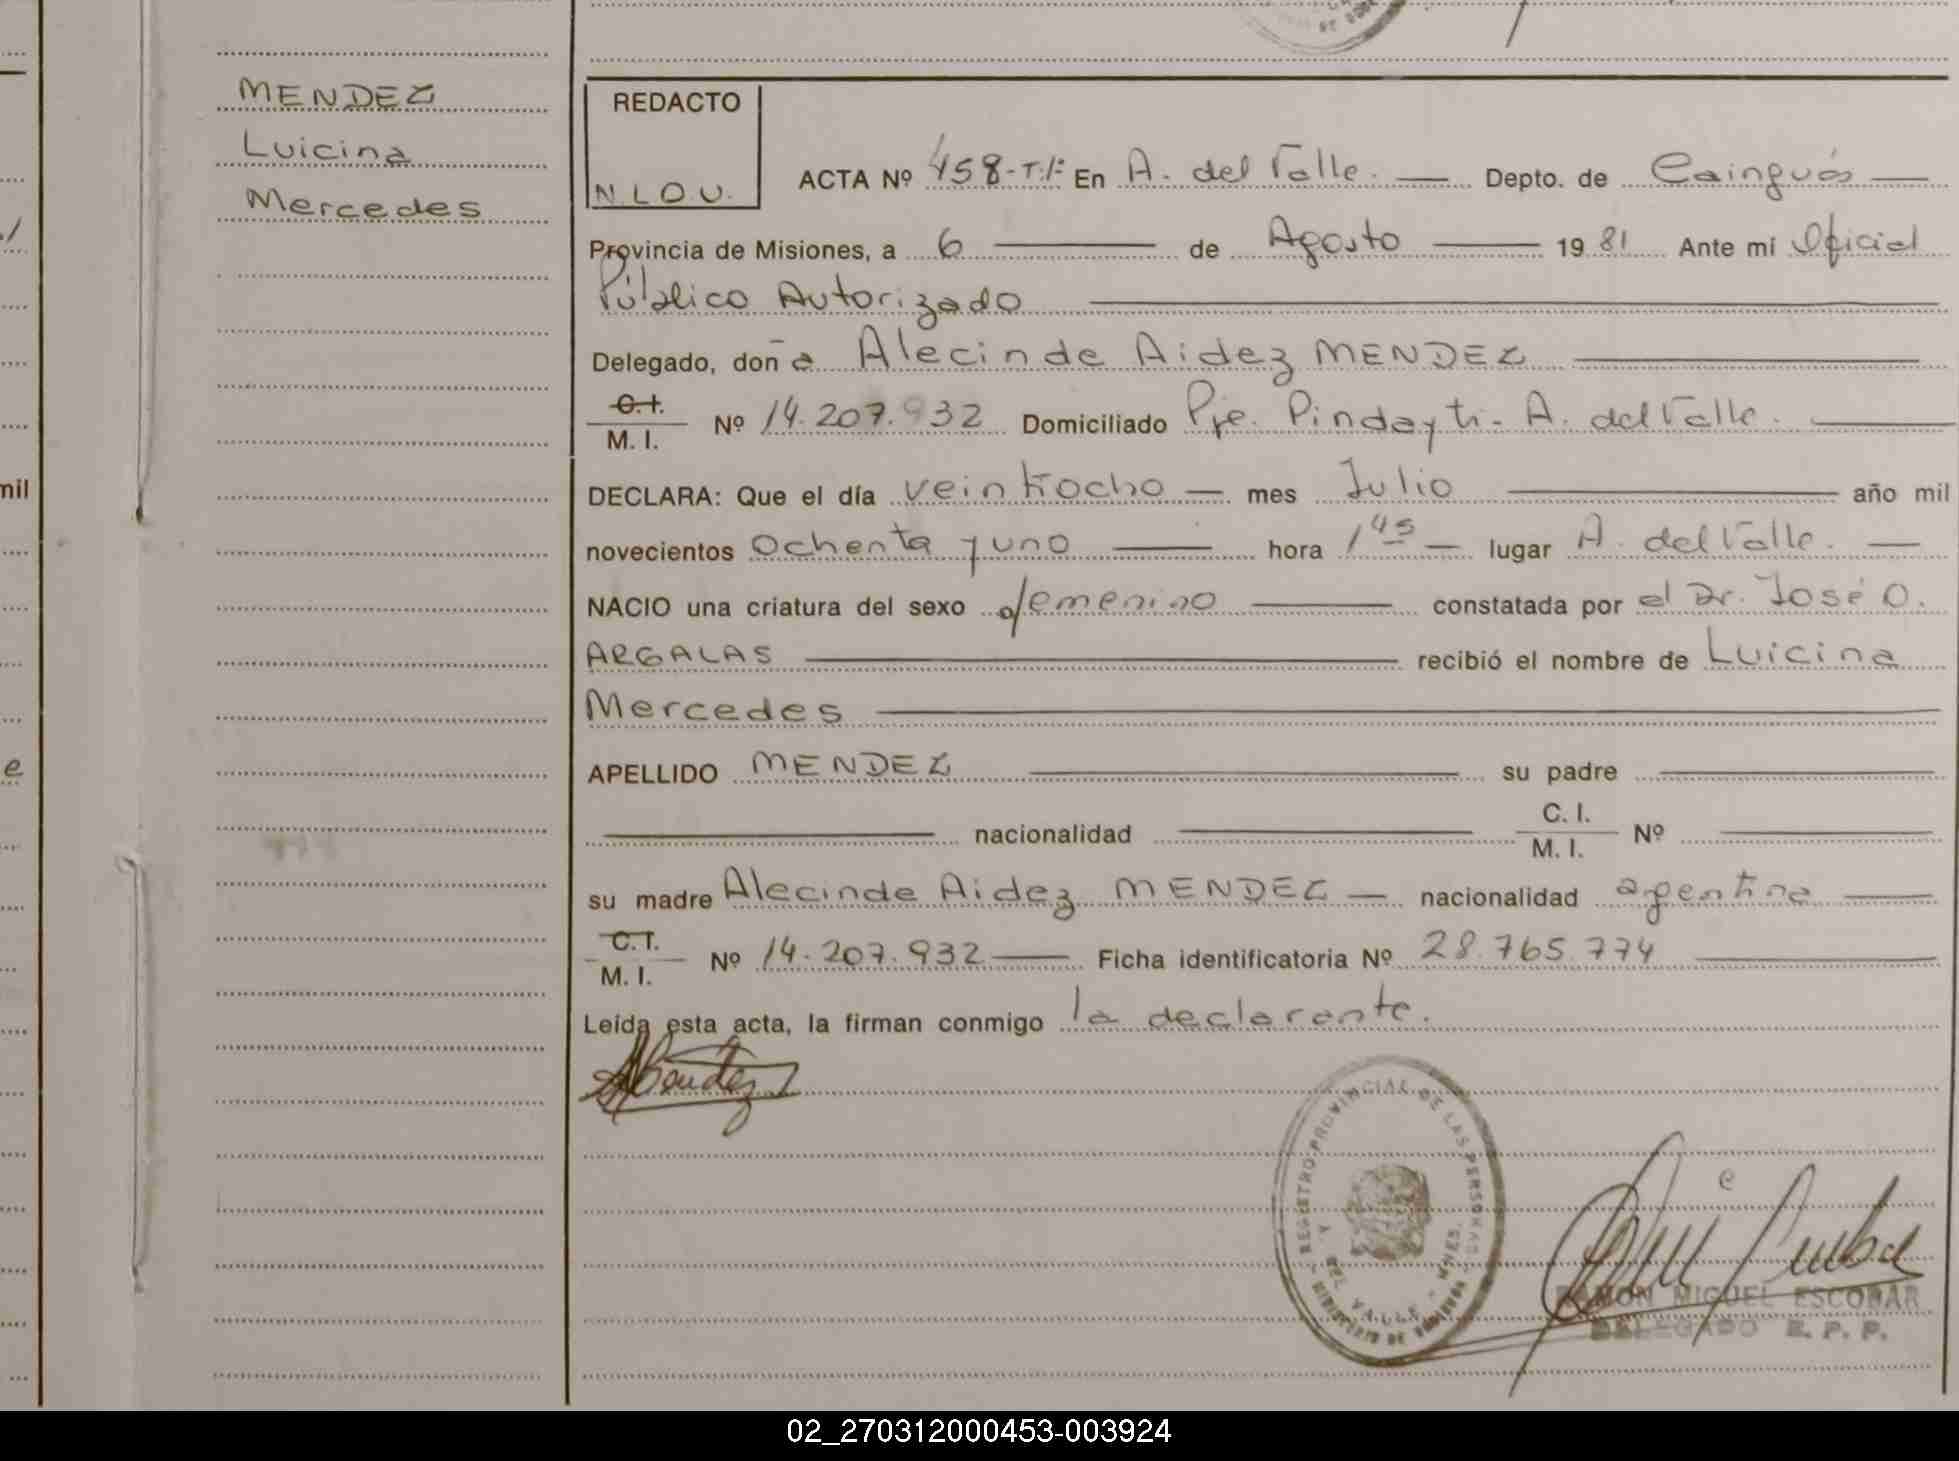 MENDEZ
Luicina
Mercedes
REDACTO
N.L.O.U.
ACTA Nº 458-T.I: En A. del Valle. Depto. de Cainguás
Provincia de Misiones, a 6 de Agosto 19 81 Ante mi Oficial
Público Autorizado
Delegado, doña Alecinde Aidez MENDEZ
C.I.
M. I. Nº 14.207.932 Domiciliado Pje. Pindayti - A. del Valle.
mil
DECLARA: Que el día veintiocho mes Julio año mil
novecientos ochenta y uno hora 1 45 lugar A. del Valle.
NACIO una criatura del sexo femenino constatada por el Dr. José O.
ARGALAS recibió el nombre de Luicina
Mercedes
e
APELLIDO MENDEZ su padre
nacionalidad C. I.
M. I. Nº
su madre Alecinde Aidez MENDEZ nacionalidad argentina
C.I.
M. I. Nº 14.207.932 Ficha identificatoria Nº 28.765.774
Leída esta acta, la firman conmigo la declarante.
REGISTRO PROVINCIAL DE LAS PERSONAS
DEL VALLE - MNES.
MINISTERIO DE GOBIERNO
RAMON MIGUEL ESCOBAR
DELEGADO R. P. P.
02_270312000453-003924